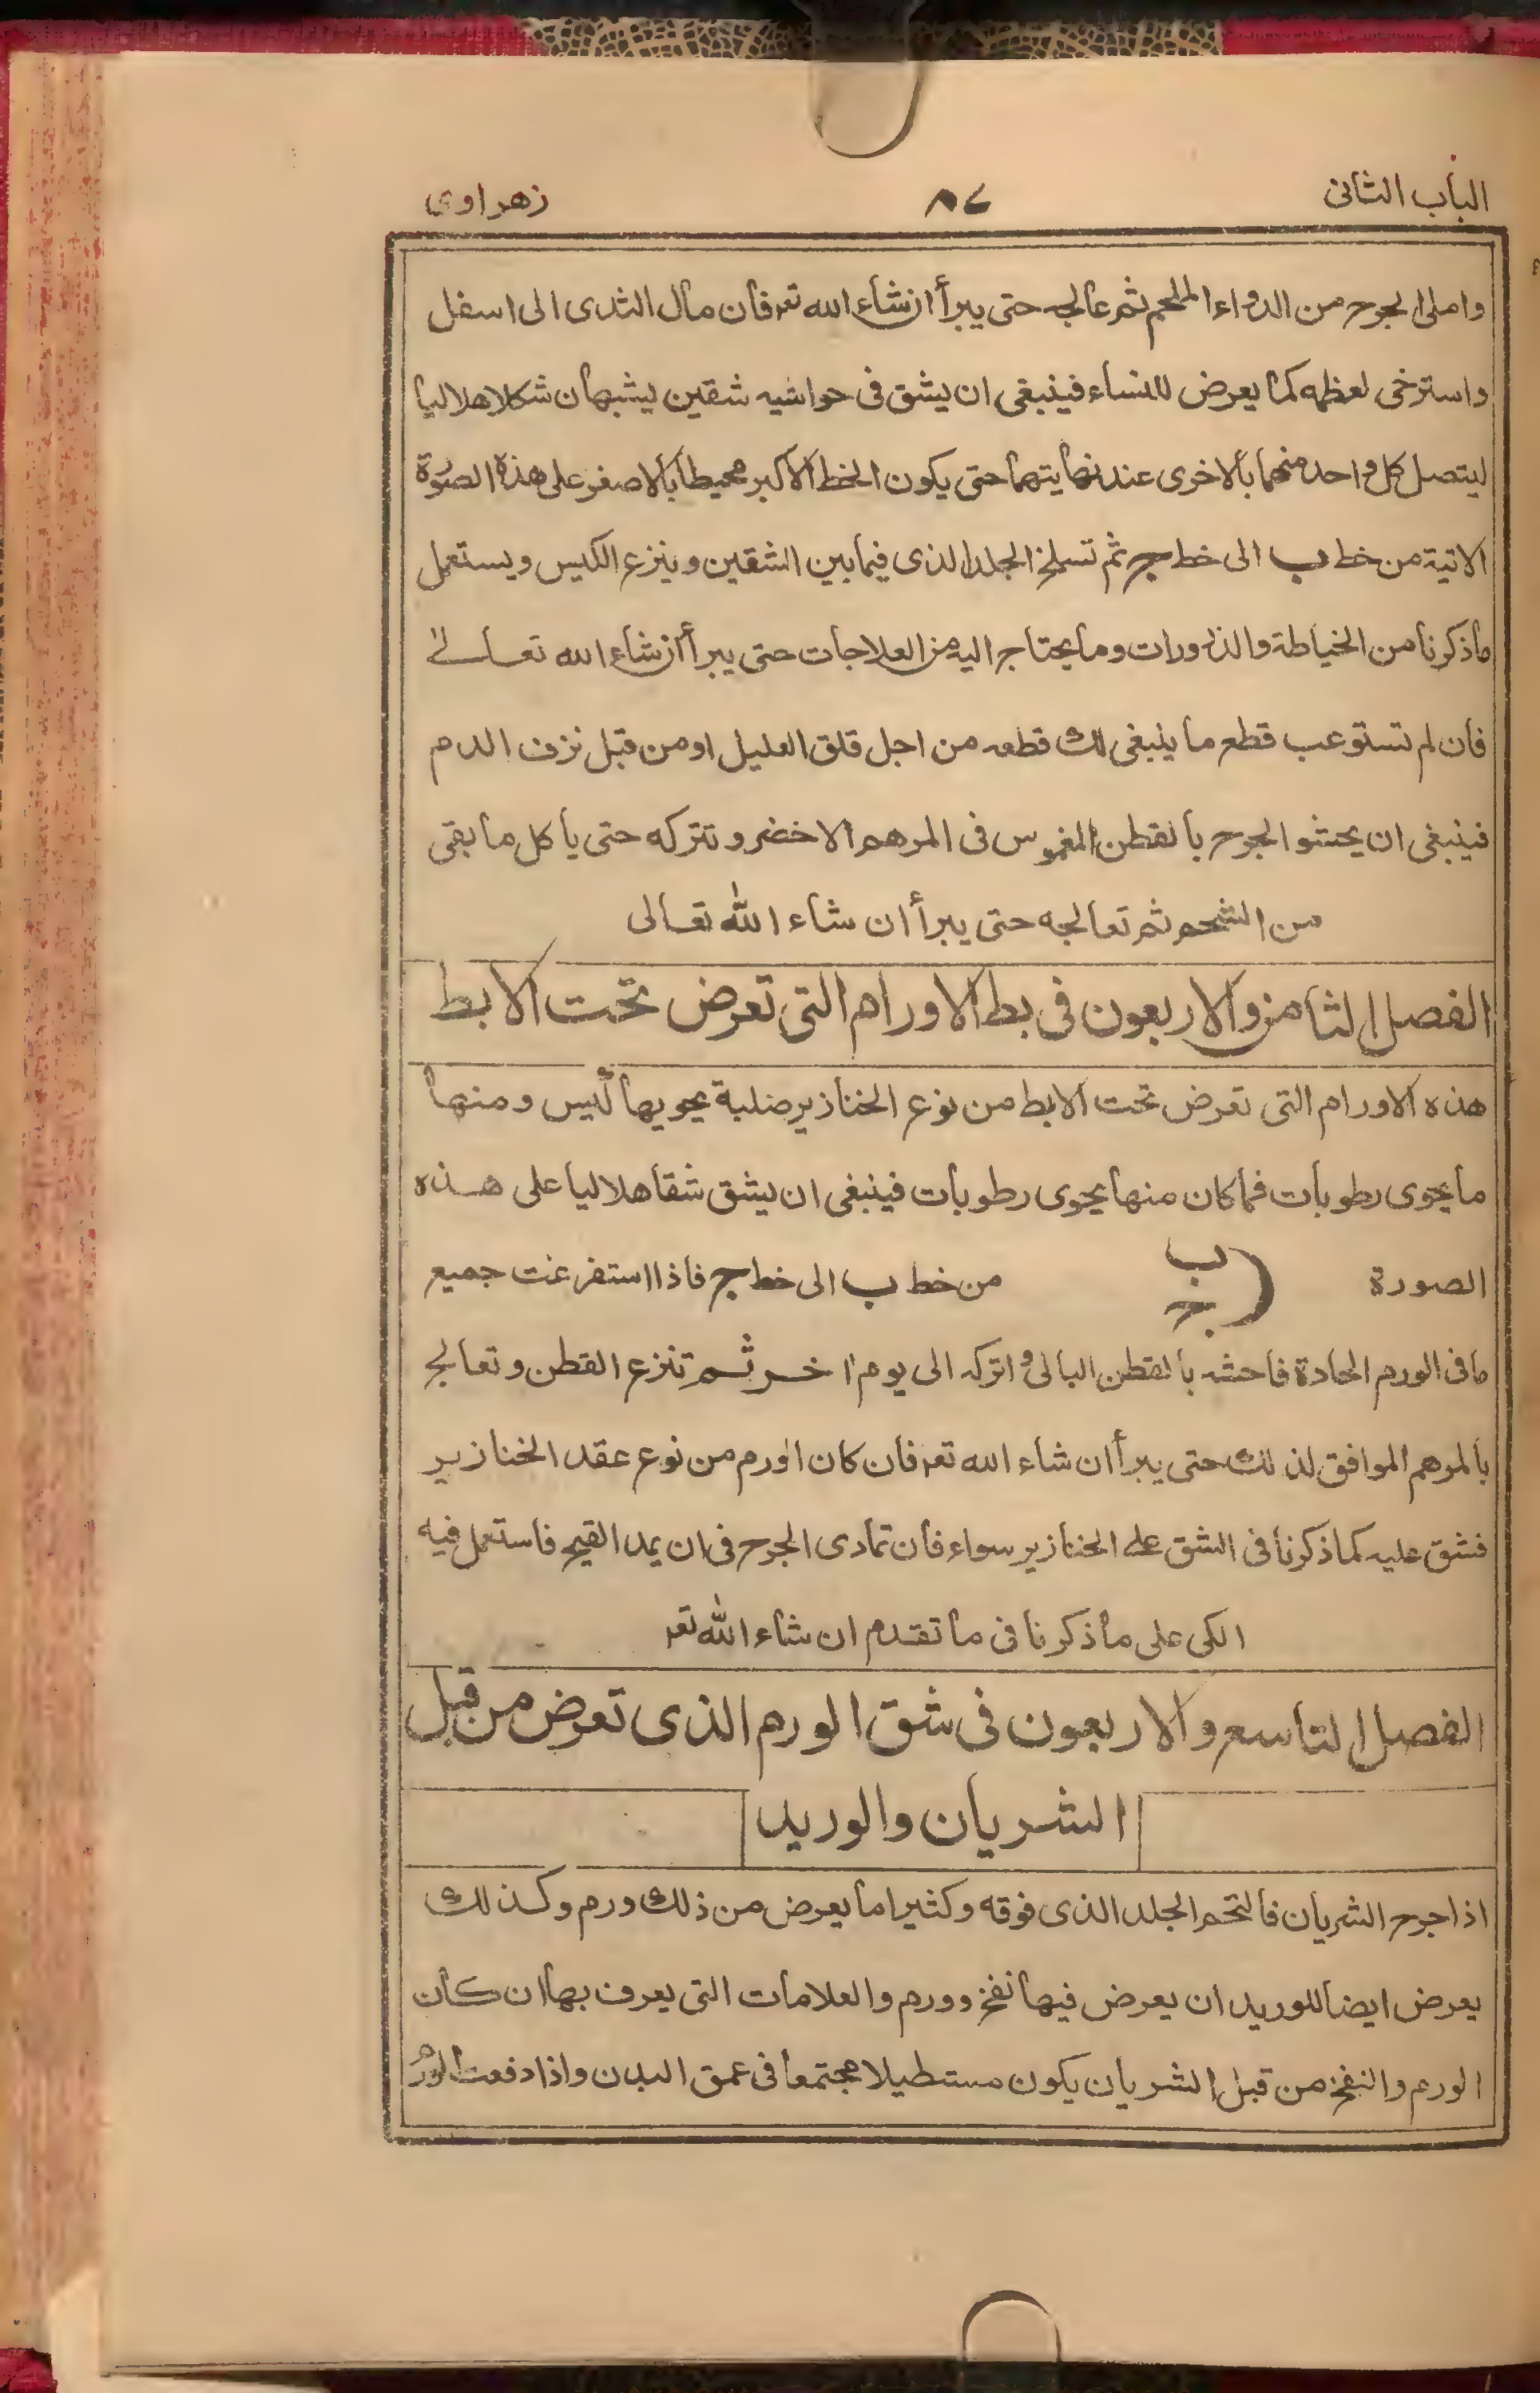 الباب الثانى ٨٤ زهراوى
واملئ الجرح من الدواء الملحم ثم عالجه حتى يبرأ ان شاء الله تعر فان مال الثدى الى اسفل
واسترخى لعظمه كما يعرض للنساء فينبغى ان يشق فى حواشيه شقين يشبهان شكلا هلاليا
ليتصل كل واحد منهما بالاخرى عند نهايتهما حتى يكون الخط الاكبر محيطا بالاصغر على هذه الصورة
الاتية من خط ب الى خط ج ثم تسلخ الجلد الذى فيما بين الشقين وينزع الكيس ويستعمل
ماذكرنا من الخياطة والذرورات وما يحتاج اليه من العلاجات حتى يبرأ ان شاء الله تعالى
فان لم تستوعب قطع ما ينبغى لك قطعه من اجل قلق العليل او من قبل نزف الدم
فينبغى ان يحشو الجرح بالقطن المغموس فى المرهم الاخضر وتتركه حتى يأكل ما بقى
من الشحم ثم تعالجه حتى يبرأ ان شاء الله تعالى
الفصل الثامن والاربعون فى بط الاورام التى تعرض تحت الابط
هذه الاورام التى تعرض تحت الابط من نوع الخنازير صلبة يحويها كيس ومنها
ما يحوى رطوبات فما كان منها يحوى رطوبات فينبغى ان يشق شقا هلاليا على هذه
الصورة ب ج من خط ب الى خط ج فاذا استفرغت جميع
ما فى الورم الحادة فاحشه بالقطن البالى واتركه الى يوم اخر ثم تنزع القطن وتعالج
بالمرهم الموافق لذلك حتى يبرأ ان شاء الله تعر فان كان الورم من نوع عقد الخنازير
فشق عليه كما ذكرنا فى الشق على الخنازير سواء فان تمادى الجرح فى ان يمد القيح فاستعمل فيه
الكى على ما ذكرنا فى ما تقدم ان شاء الله تعر
الفصل التاسع والاربعون فى شق الورم الذى تعرض من قبل
الشريان والوريد
اذا جرح الشريان فالتحم الجلد الذى فوقه وكثيرا ما يعرض من ذلك ورم وكذلك
يعرض ايضا للوريد ان يعرض فيها نفخ وورم والعلامات التى يعرف بها ان كان
الورم والنفخ من قبل الشريان يكون مستطيلا مجتمعا فى عمق البدن واذا دفعت الورم